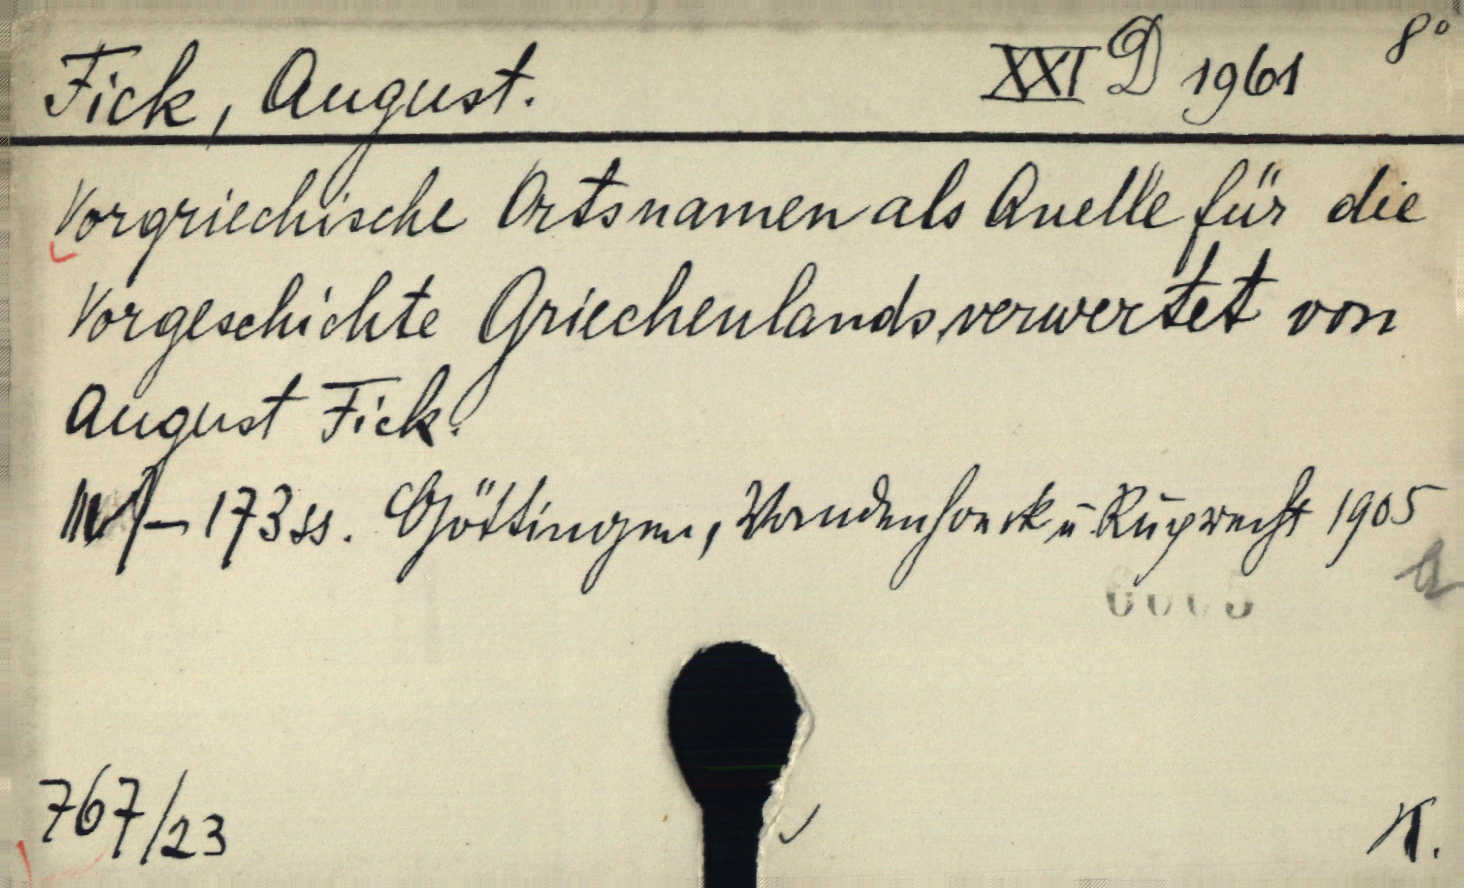 Fick, August. XXI D 1961 8°
Vorgriechische Ortsnamen als Quelle für die
Vorgeschichte Griechenlands, verwertet von
August Fick.
– 173 ss. Göttingen, Vandenhoeck u Ruprecht 1905
6005
767/23